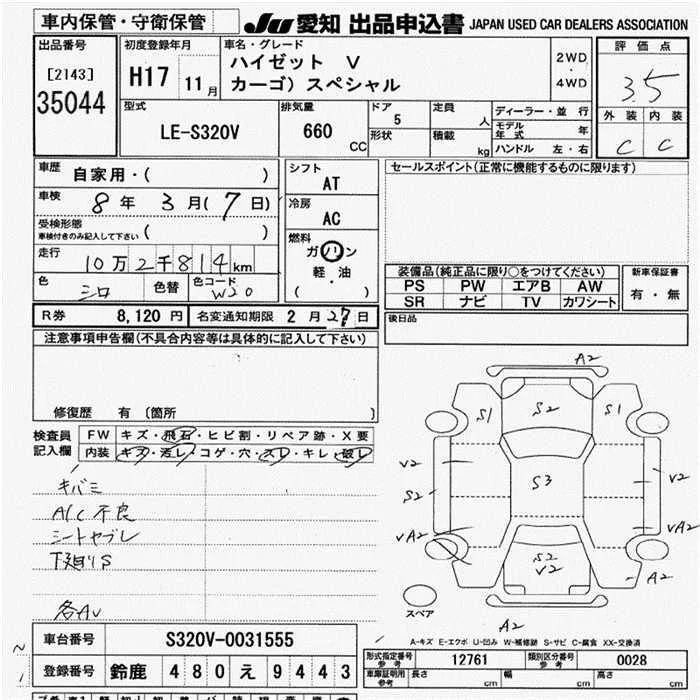 車内保管・守衛保管 JU 愛知 出品申込書 JAPAN USED CAR DEALERS ASSOCIATION
出品番号 初度登録年月 車名・グレード 評価点
[2143] H17 11月 ハイゼット V 2WD・4WD 3.5
35044 カーゴ) スペシャル
外装 内装
型式 排気量 ドア 定員 ディーラー・並行
LE-S320V 660 CC 5 人 モデル年式 年 C C
形状 積載 kg ハンドル 左・右
車歴 自家用・( ) シフト セールスポイント(正常に機能するものに限ります)
AT
車検 8年 3月(7日) 冷房
AC
受検形態 ( )
車検付きのみ記入して下さい
燃料
走行 10万2千814km ガソリン
軽・油
( )
色 シロ 色替 色コード W20
装備品(純正品に限り○をつけてください) 新車保証書
PS PW エアB AW 有・無
SR ナビ TV カワシート
R券 8,120円 名変通知期限 2月27日 後日品
注意事項申告欄(不具合内容等は具体的に記入して下さい)
修復歴 有 〔箇所 〕
検査員記入欄 FW キズ・飛石・ヒビ割・リペア跡・X要
内装 キズ・汚レ・コゲ・穴・スレ・キレ・破レ
キバミ
A/C不良
シートヤブレ
下廻りS
各AU
A2
S1 S2 S1
V2 V2
S2 S3
VA2 VA2
S2
V2
A2
スペア A2
A-キズ E-エクボ U-凹み W-補修跡 S-サビ C-腐食 XX-交換済
車台番号 S320V-0031555
登録番号 鈴鹿 480 え 9443
形式指定番号 参考 12761 類別区分番号 参考 0028
車庫証明用 参考 長さ cm 幅 cm 高さ cm